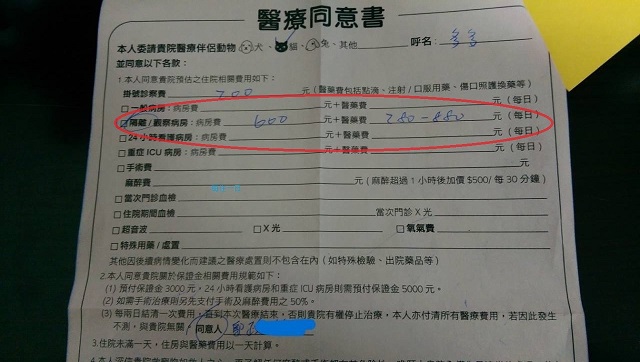 醫療同意書
本人委請貴院醫療伴侶動物 犬、貓、兔、其他 呼名：多多
並同意以下各款：
1.本人同意貴院預估之住院相關費用如下：
掛號診察費 200 元（醫藥費包括點滴、注射／口服用藥、傷口照護換藥等）
□一般病房：病房費 元＋醫藥費 元（每日）
隔離／觀察病房：病房費 600 元＋醫藥費 280-880 元（每日）
□24小時看護病房：病房費 元＋醫藥費 元（每日）
□重症ICU病房：病房費 元＋醫藥費 元（每日）
□手術費 元
麻醉費 元（麻醉超過1小時後加價$500/每30分鐘）
□當次門診血檢
□住院期間血檢 當次門診X光
□超音波 □X光 □氧氣費
□特殊用藥/處置
其他因後續病情變化而建議之醫療處置則不包含在內（如特殊檢驗、出院藥品等）
2.本人同意貴院關於保證金相關費用規範如下：
(1) 預付保證金3000元，24小時看護病房和重症ICU病房則需預付保證金5000元。
(2) 如需手術治療則另先支付手術及麻醉費之50%。
(3) 每兩日結清一次費用，直到本次醫療結束，否則貴院有權停止治療，本人亦付清所有醫療費用，若因此發生
不測，與貴院無關 同意人
3.住院未滿一天，住房與醫藥費用以一天計算。